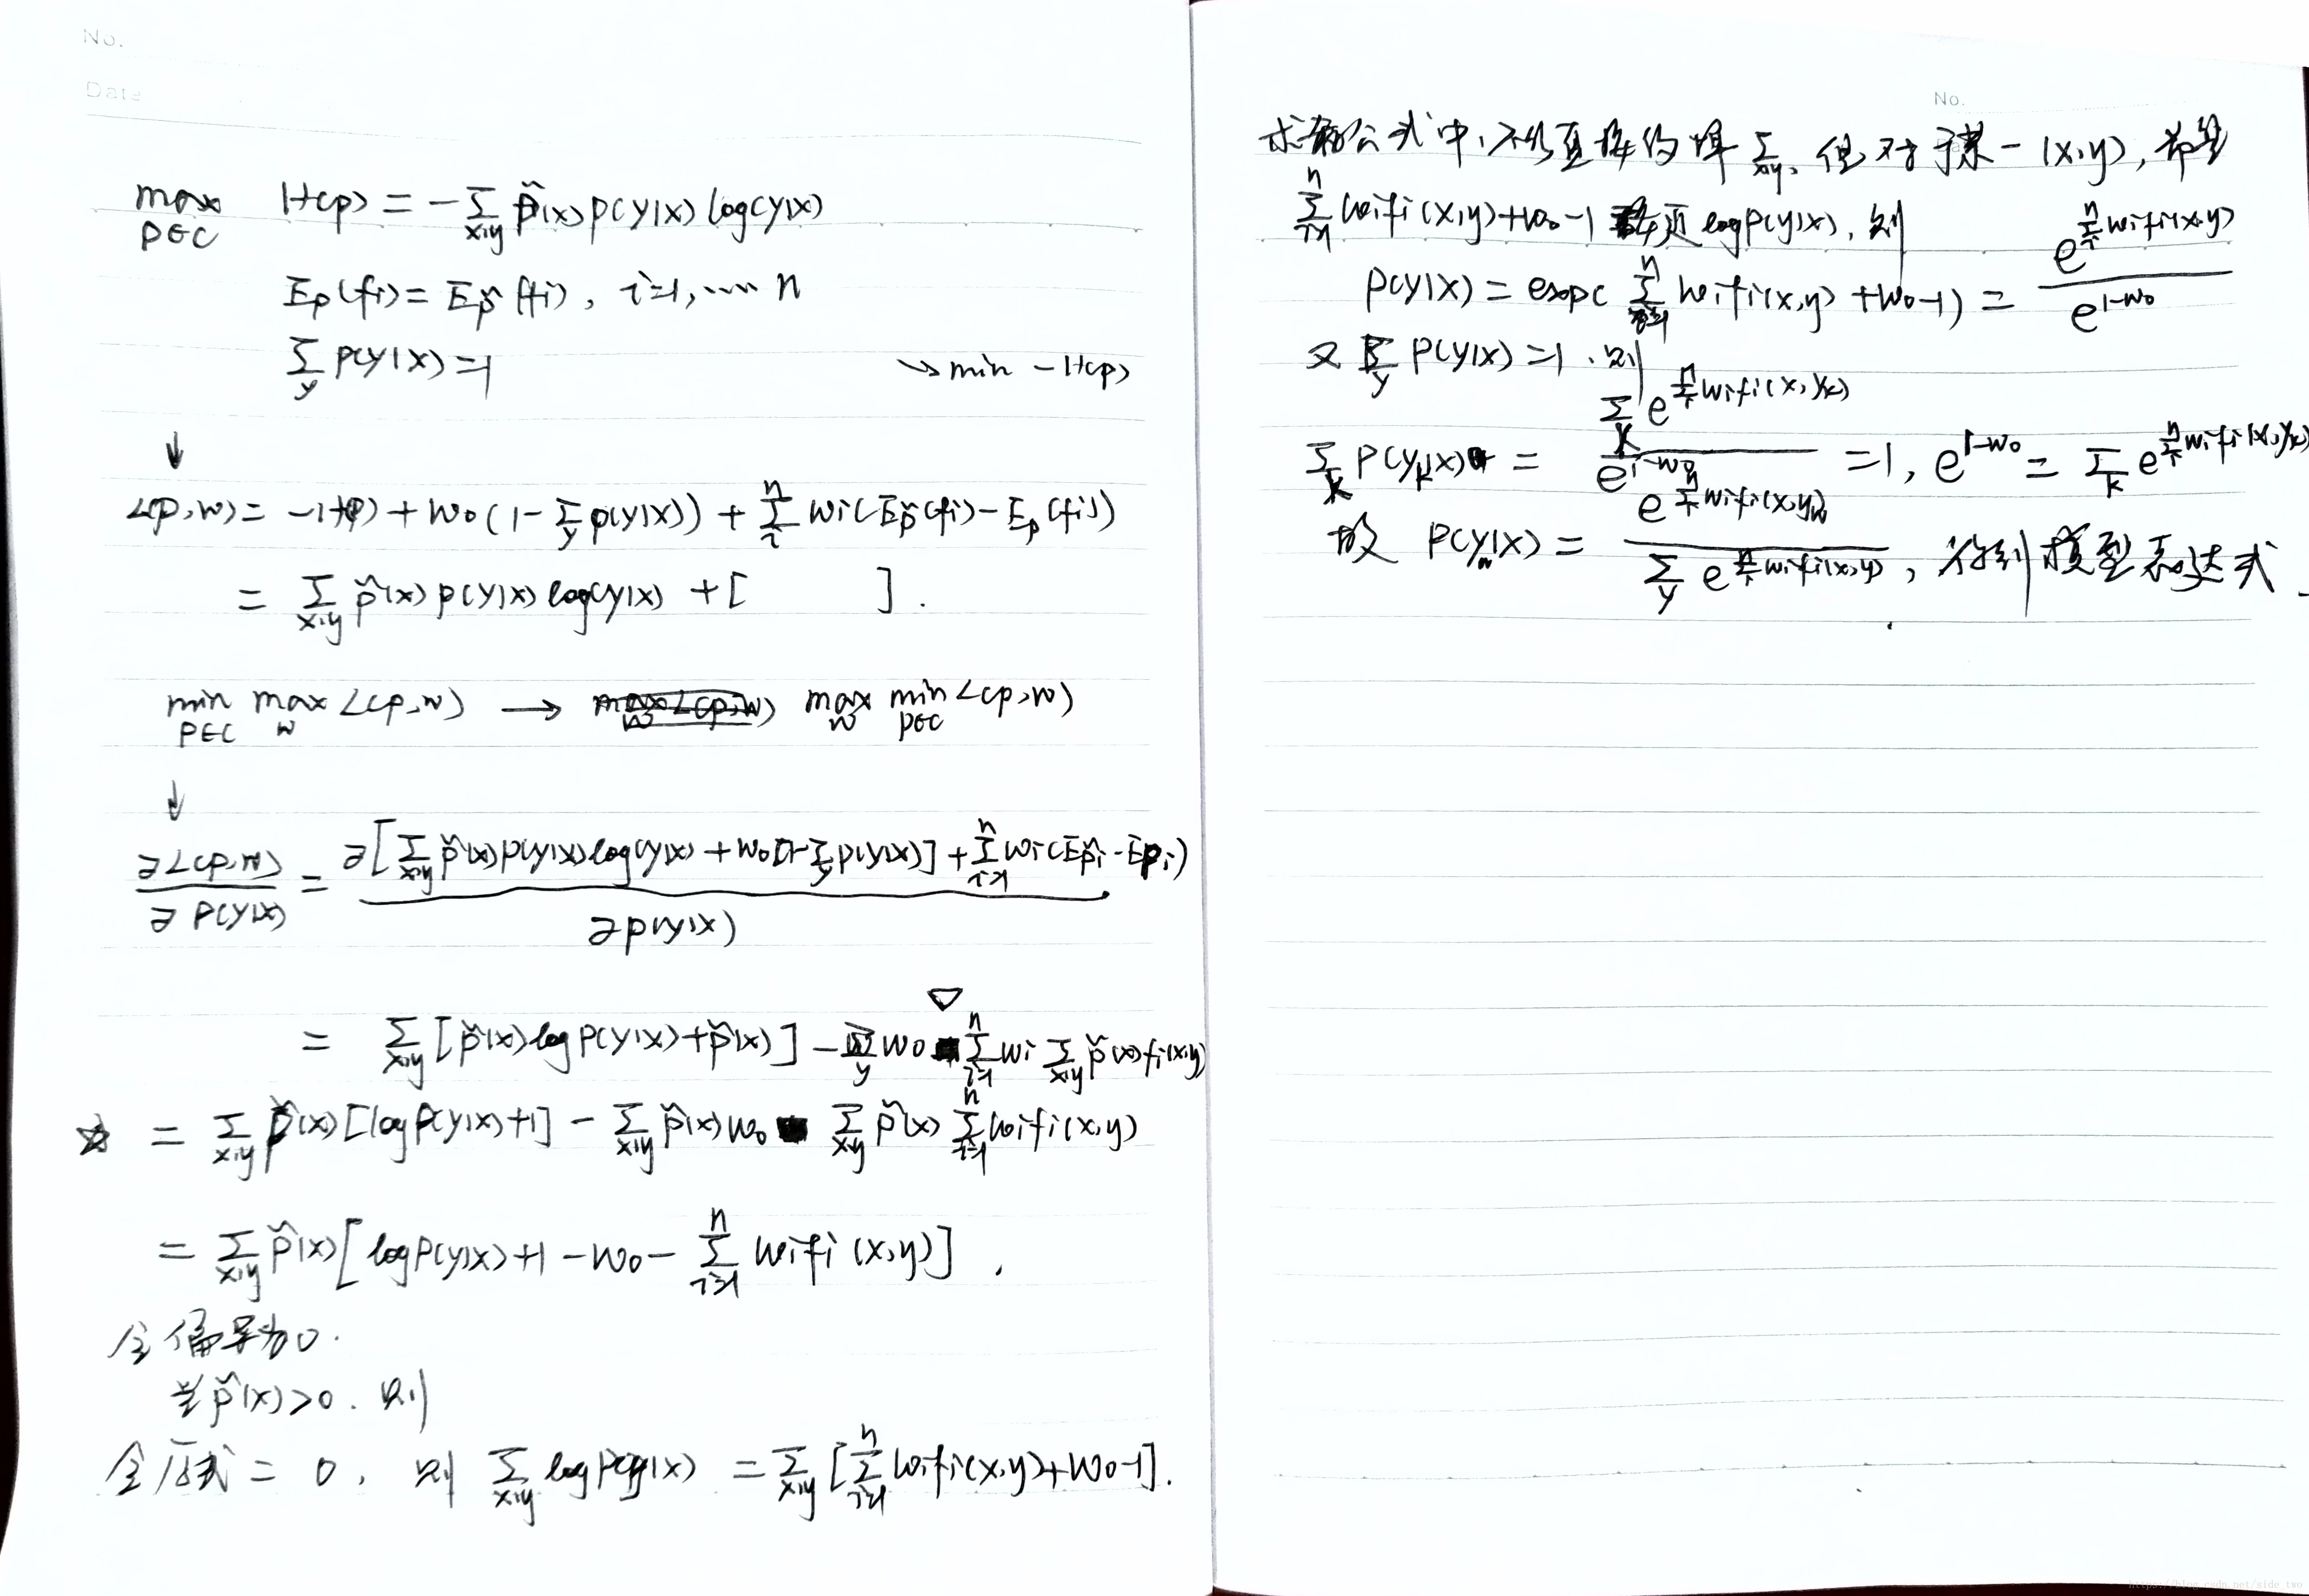 No.
Date
max H(p) = -∑ p̃(x) p(y|x) log(y|x)
p∈C x,y
Ep(fi) = Ep̃(fi), i=1,……n
∑ p(y|x) = 1
y
→ min -H(p)
↓
L(p,w) = -H(p) + w0(1-∑y p(y|x)) + ∑i^n wi(Ep̃(fi) - Ep(fi))
= ∑x,y p̃(x) p(y|x) log(y|x) + [ ].
min max L(p,w) → max min L(p,w)
p∈C w w p∈C
↓
∂L(p,w) / ∂P(y|x) = ∂[∑x,y p̃(x)p(y|x)log(y|x) + w0[1-∑y p(y|x)] + ∑i=1^n wi(Ep̃i - Epi) / ∂p(y|x)
▽
= ∑x,y [p̃(x) log P(y|x) + p̃(x)] - ∑y w0 ∑i=1^n wi ∑x,y p̃(x) fi(x,y)
☆ = ∑x,y p̃(x) [log P(y|x)+1] - ∑x,y p̃(x) w0 ∑x,y p̃(x) ∑i=1^n wifi(x,y)
= ∑x,y p̃(x) [log P(y|x) + 1 - w0 - ∑i=1^n wifi(x,y)].
令偏导为0.
当 p̃(x)>0. 则
令后式 = 0, 则 ∑x,y log P(y|x) = ∑x,y [∑i=1^n wifi(x,y)+w0-1].
No.
公式中,不能直接约掉 ∑x,y, 但对于某一(x,y), 希望
∑i=1^n wifi(x,y)+w0-1 log p(y|x), 则
p(y|x) = exp(∑i=1^n wifi(x,y) + w0-1) = e^{∑i^n wifi(x,y)} / e^{1-w0}
又 ∑y P(y|x) = 1. 则
∑k P(yk|x) = ∑k e^{∑i^n wifi(x,yk)} / e^{1-w0} = 1, e^{1-w0} = ∑k e^{∑i^n wifi(x,yk)}
故 P(y|x) = e^{∑i^n wifi(x,y)} / ∑y e^{∑i^n wifi(x,y)}, 得到模型表达式.